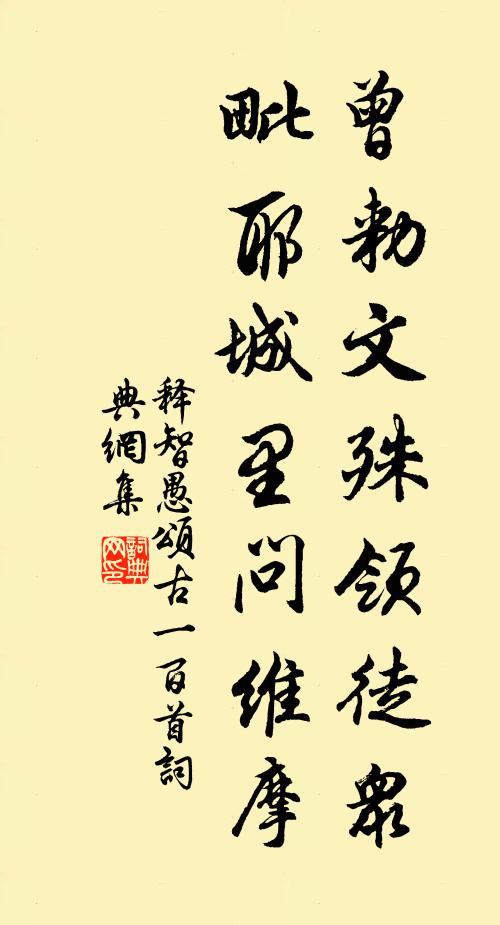 曾勅文殊領徒眾
毗耶城里問維摩
释智愚頌古一百首詞
典網集
詞典
网印